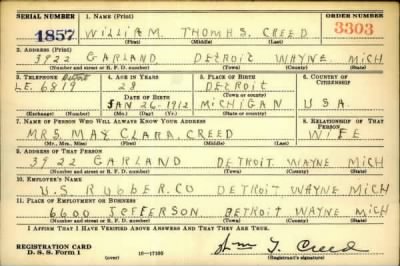 SERIAL NUMBER 1. NAME (Print) ORDER NUMBER
1857 WILLIAM. THOMAS. CREED 3303
(First) (Middle) (Last)
2. ADDRESS (Print)
3922 GARLAND DETROIT WAYNE MICH
(Number and street or R. F. D. number) (Town) (County) (State)
3. TELEPHONE Detroit 4. AGE IN YEARS 5. PLACE OF BIRTH 6. COUNTRY OF CITIZENSHIP
LE. 6819 29 DETROIT
DATE OF BIRTH
JAN 26-1912 MICHIGAN U.S.A.
(Exchange) (Number) (Mo.) (Day) (Yr.) (State or country)
7. NAME OF PERSON WHO WILL ALWAYS KNOW YOUR ADDRESS 8. RELATIONSHIP OF THAT PERSON
MRS. MAY CLARA. CREED WIFE
(Mr., Mrs., Miss) (First) (Middle) (Last)
9. ADDRESS OF THAT PERSON
3922 GARLAND DETROIT WAYNE MICH
(Number and street or R. F. D. number) (Town) (County) (State)
10. EMPLOYER'S NAME
U.S RUBBER.CO DETROIT WAYNE MICH
11. PLACE OF EMPLOYMENT OR BUSINESS
6600 JEFFERSON DETROIT WAYNE MICH
(Number and street or R. F. D. number) (Town) (County) (State)
I AFFIRM THAT I HAVE VERIFIED ABOVE ANSWERS AND THAT THEY ARE TRUE.
REGISTRATION CARD
D. S. S. Form 1 (over) 16—17105 Wm T. Creed
(Registrant's signature)